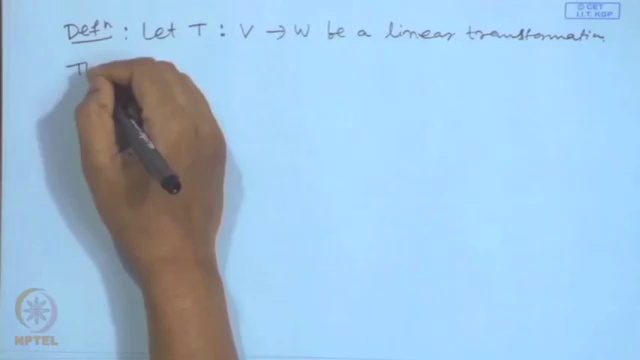 © CET
I.I.T. KGP
Defⁿ : Let T : V → W be a linear transformation.
NPTEL